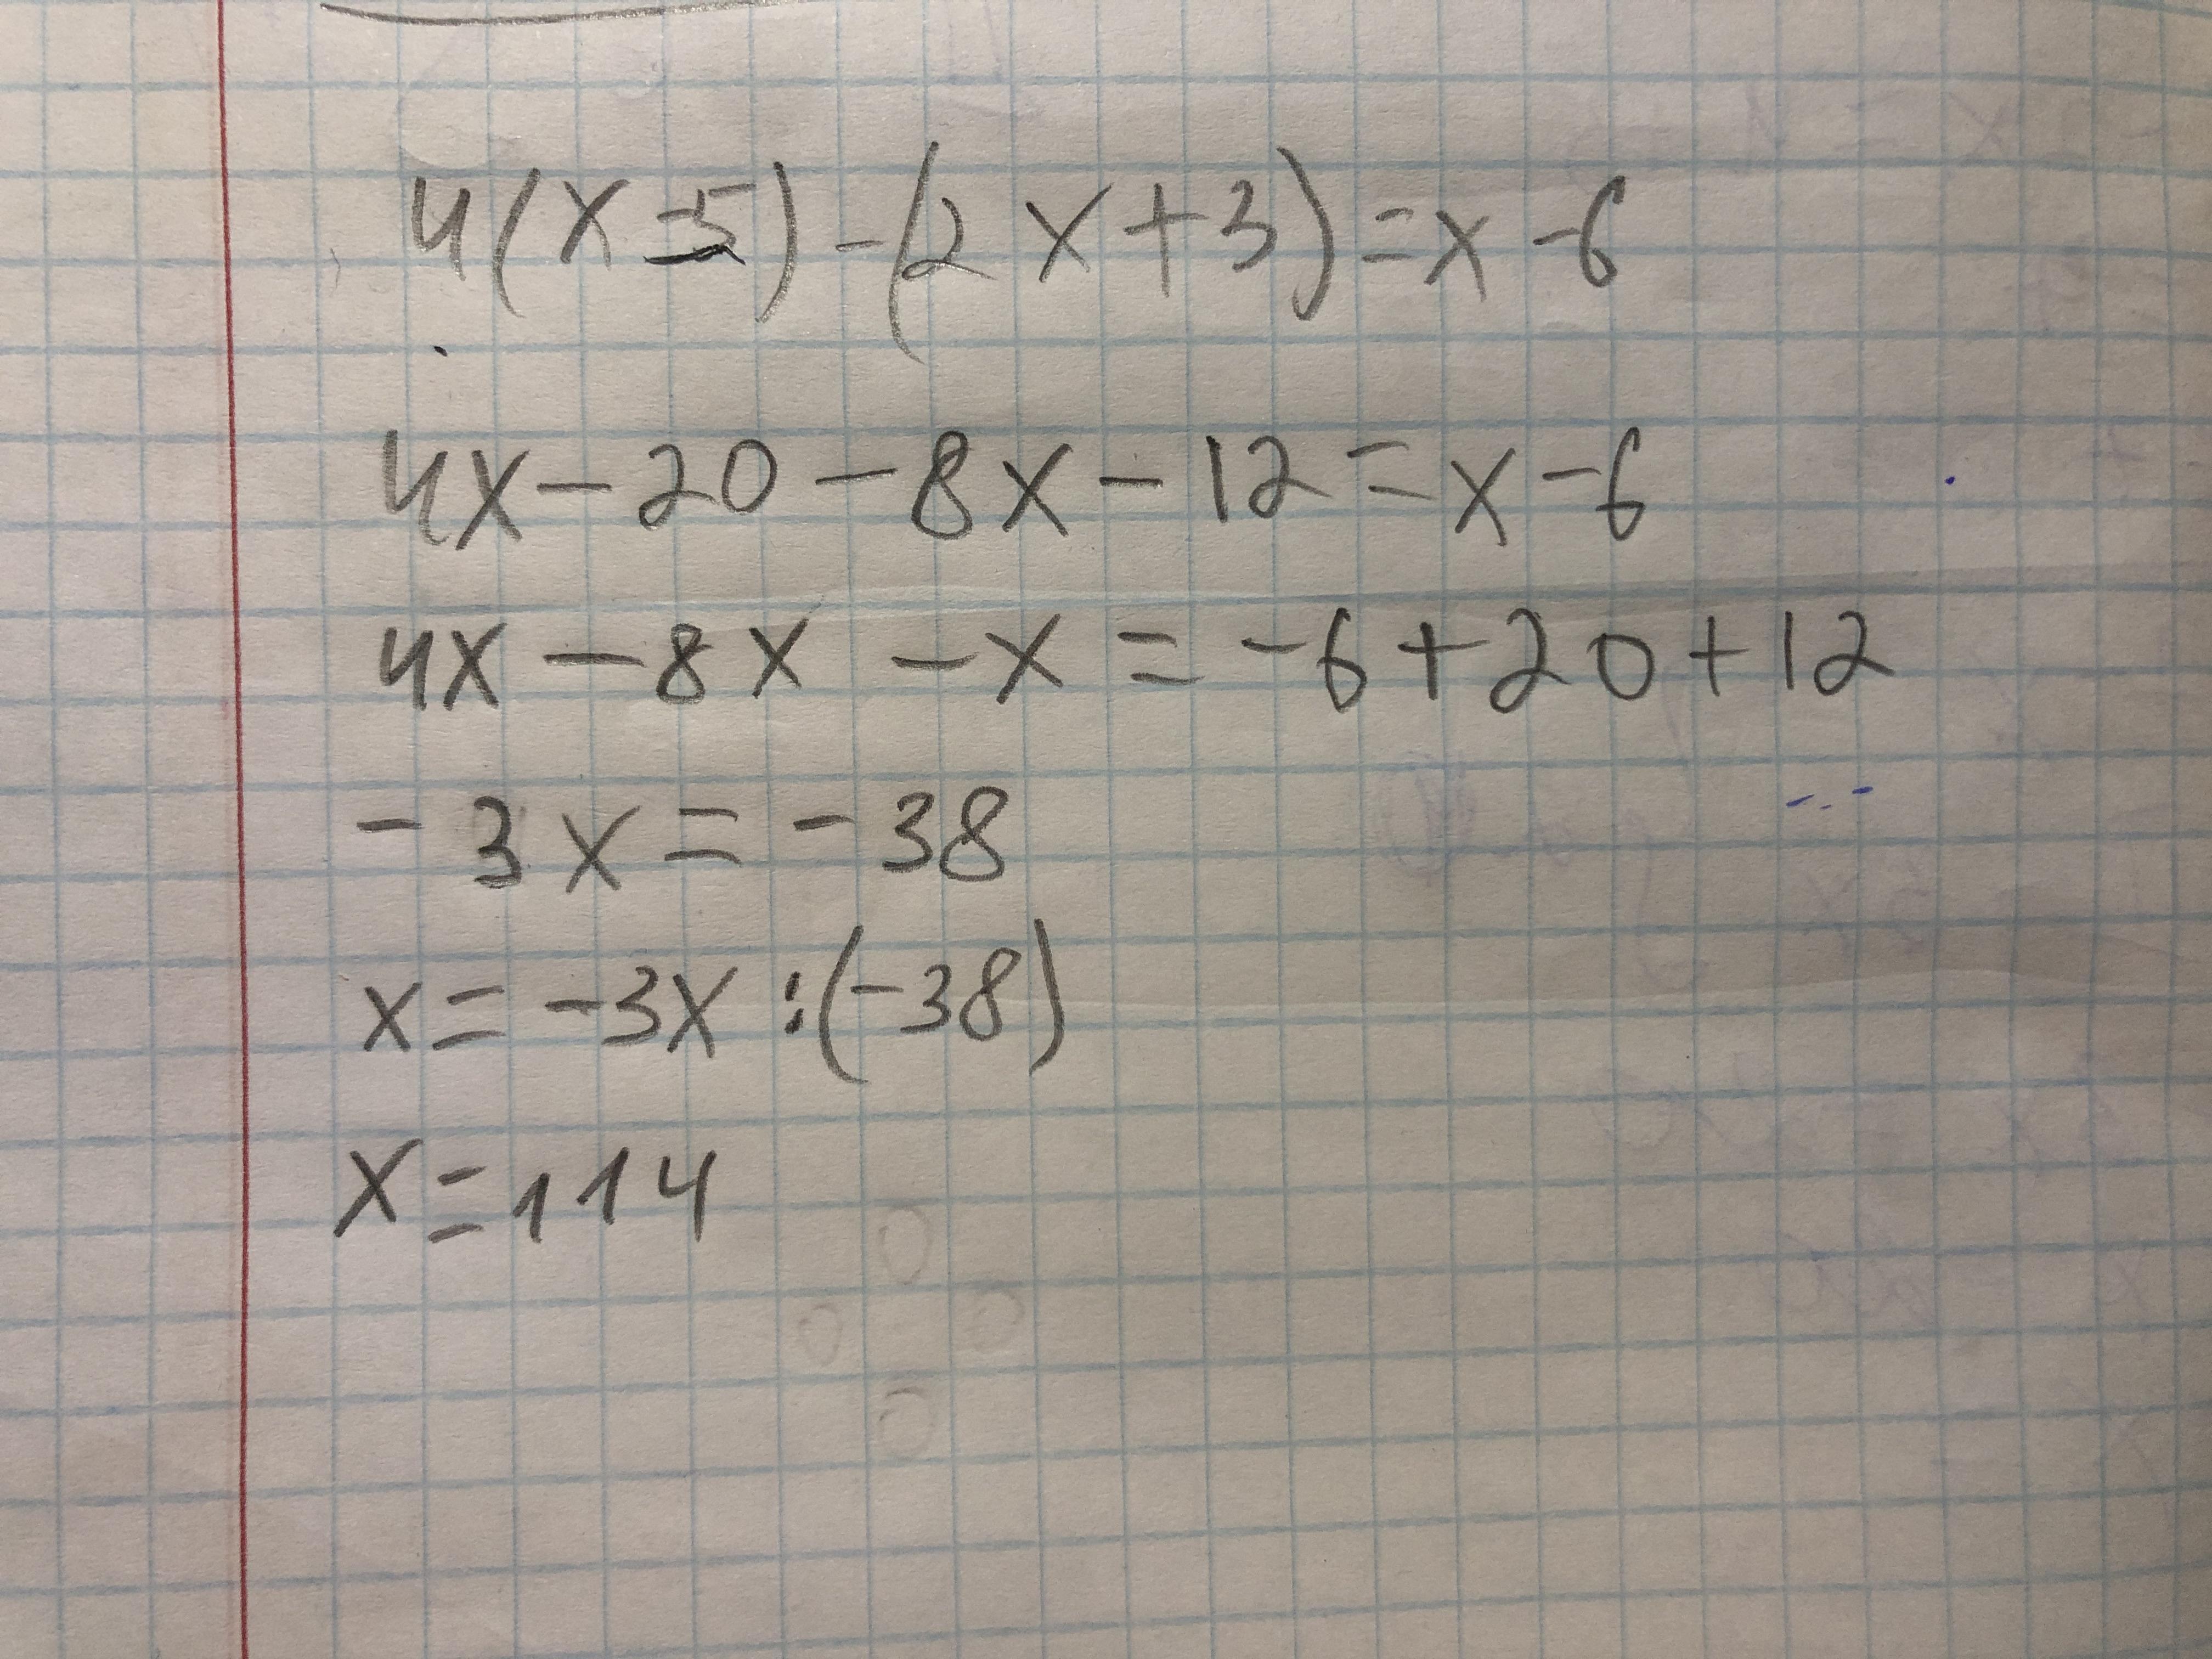 4(x-5)-(2x+3)=x-6
4x-20-8x-12=x-6
4x-8x-x=-6+20+12
-3x=-38
x=-3x:(-38)
x=114